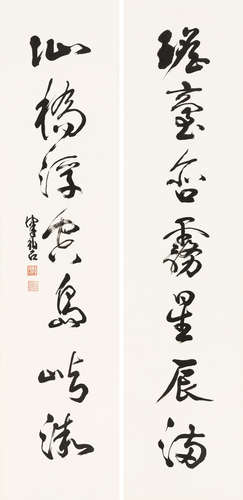 瑤臺含霧星辰滿
仙橋浮空島嶼微